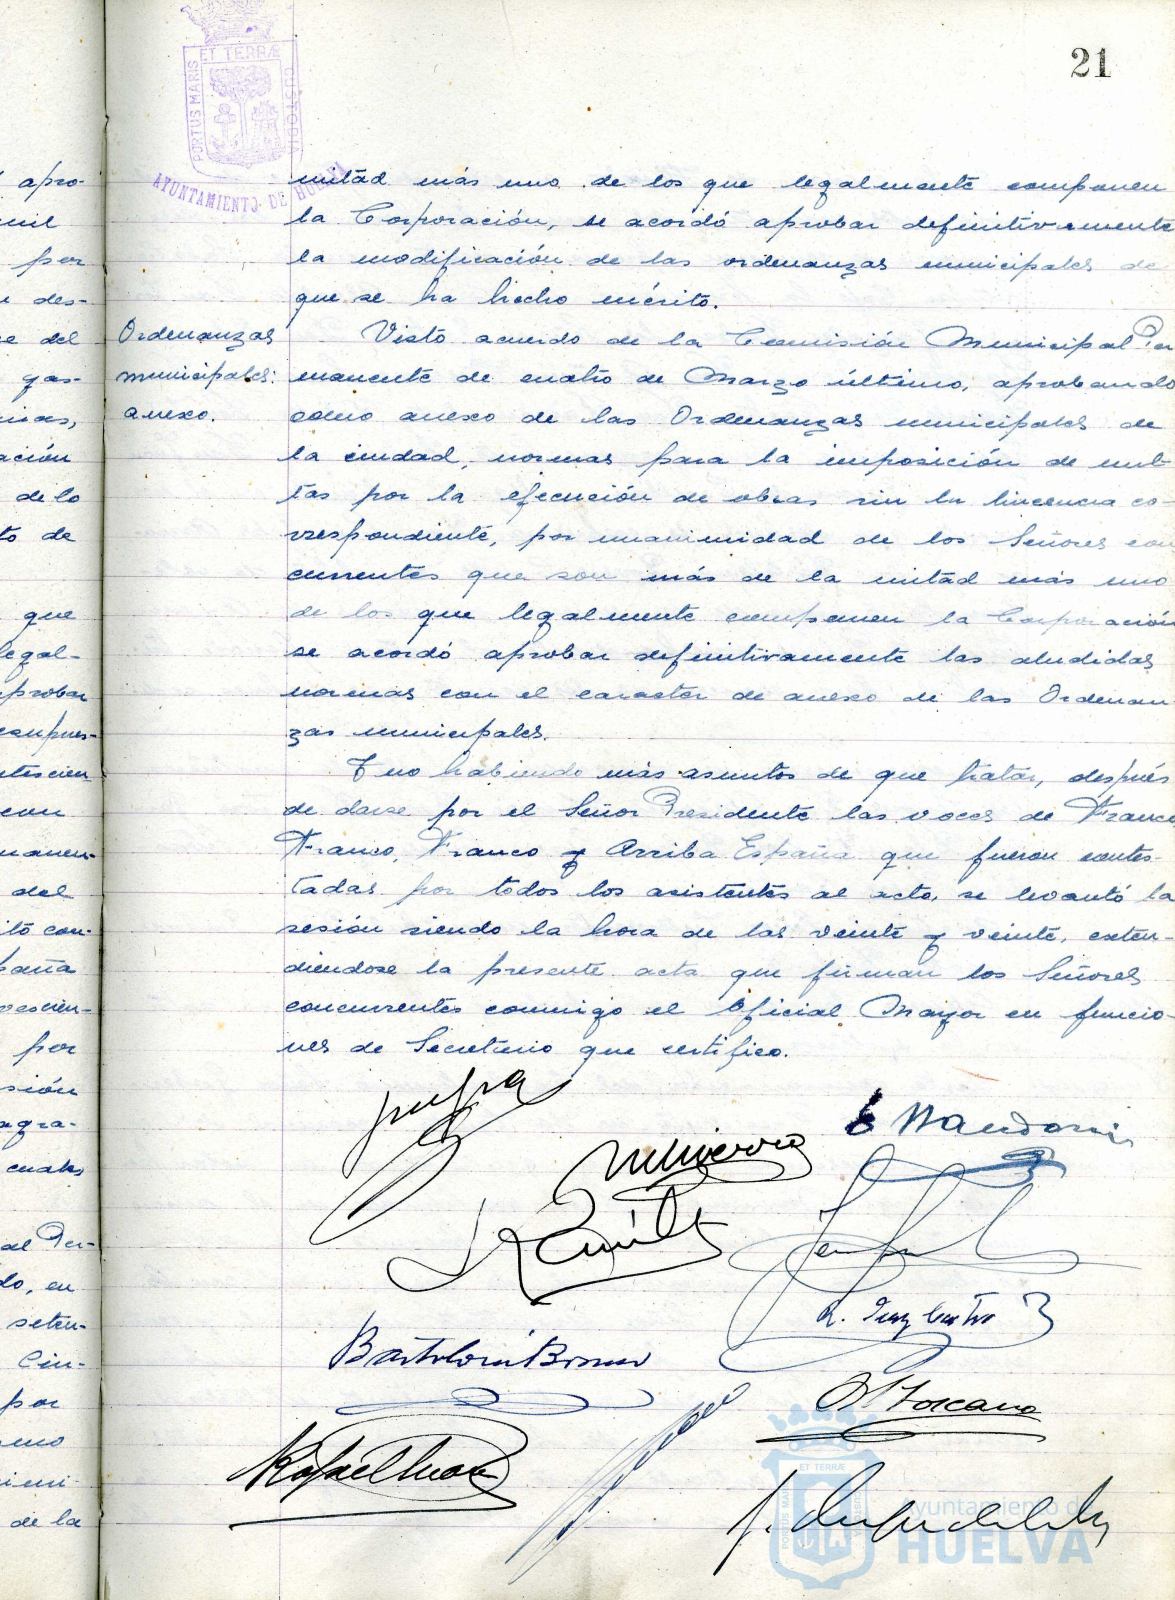 21
PORTUS MARIS ET TERRÆ CUSTODIA
AYUNTAMIENTO DE HUELVA
apro-
mil
por
des-
del
gas-
ación
de lo
to de
que
legal-
aprobar
del
con-
por
sión
agra-
al Per-
do, en
seten-
Cin-
por
de la
Ordenanzas
municipales:
anexo.
mitad más uno de los que legalmente componen
la Corporación, se acordó aprobar definitivamente
la modificación de las ordenanzas municipales de
que se ha hecho mérito.
Visto acuerdo de la Comisión Municipal Per
manente de cuatro de Marzo último, aprobando
como anexo de las Ordenanzas municipales de
la ciudad, normas para la imposición de mul
tas por la ejecución de obras sin la lincencia co-
rrespondiente, por unanimidad de los Señores con
currentes que son más de la mitad más uno
de los que legalmente componen la Corporación
se acordó aprobar definitivamente las aludidas
normas con el caracter de anexo de las Ordenan
zas municipales.
Y no habiendo más asuntos de que tratar, después
de darse por el Señor Presidente las voces de Franco
Franco, Franco y Arriba España que fueron contes-
tadas por todos los asistentes al acto, se levantó la
sesión siendo la hora de las veinte y veinte, exten-
diéndose la presente acta que firman los Señores
concurrentes conmigo el Oficial Mayor en funcio-
nes de Secretario que certifico.
Bartolomé
Toscano
Rafael
ET TERRÆ
Ayuntamiento de
HUELVA